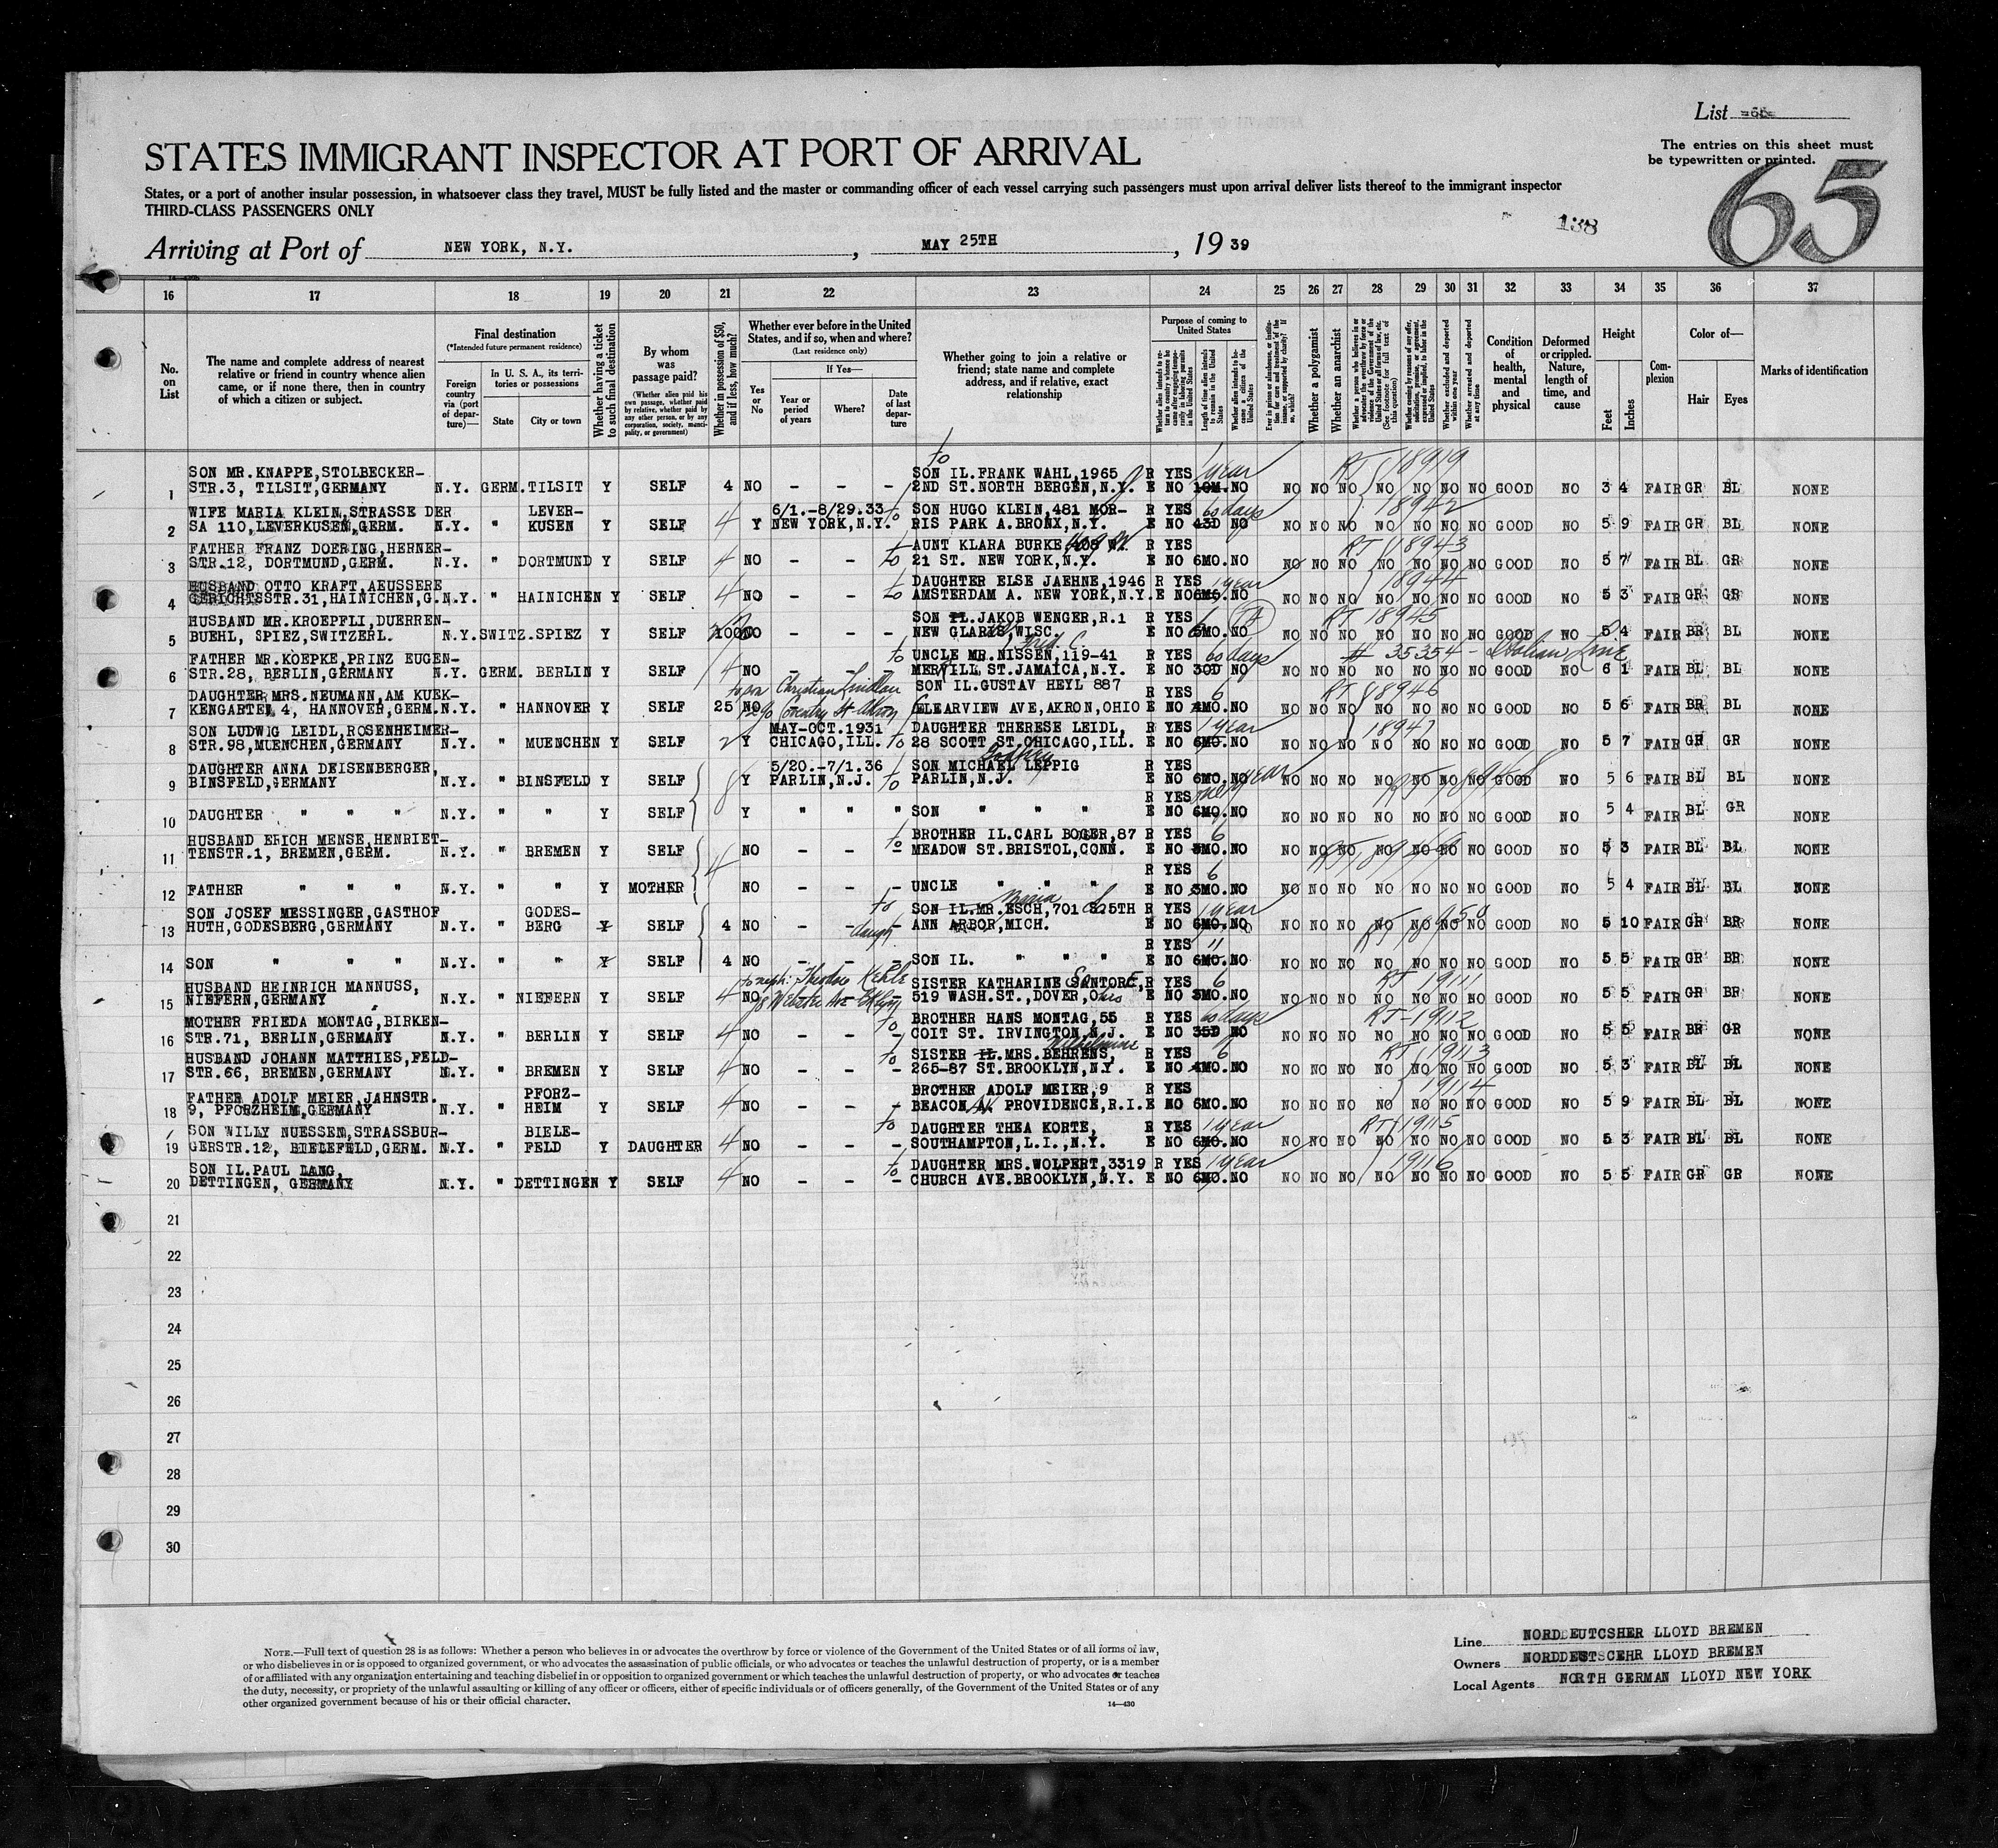 List
The entries on this sheet must
be typewritten or printed.
65
138
STATES IMMIGRANT INSPECTOR AT PORT OF ARRIVAL
States, or a port of another insular possession, in whatsoever class they travel, MUST be fully listed and the master or commanding officer of each vessel carrying such passengers must upon arrival deliver lists thereof to the immigrant inspector
THIRD-CLASS PASSENGERS ONLY
Arriving at Port of NEW YORK, N.Y., MAY 25TH, 1939
16 17 18 19 20 21 22 23 24 25 26 27 28 29 30 31 32 33 34 35 36 37
No. on List
The name and complete address of nearest relative or friend in country whence alien came, or if none there, then in country of which a citizen or subject.
Final destination
(*Intended future permanent residence)
Foreign country via (port of departure)—
In U. S. A., its territories or possessions
State City or town
Whether having a ticket to such final destination
By whom was passage paid?
(Whether alien paid his own passage, whether paid by relative, whether paid by any other person, or by any corporation, society, municipality, or government)
Whether in possession of $50, and if less, how much?
Whether ever before in the United States, and if so, when and where?
(Last residence only)
Yes or No
If Yes—
Year or period of years
Where?
Date of last departure
Whether going to join a relative or friend; state name and complete address, and if relative, exact relationship
Purpose of coming to United States
Length of time alien intends to remain in the United States
Whether alien intends to become a citizen of the United States
Whether a polygamist
Whether an anarchist
Whether arrested and deported at any time
Condition of health, mental and physical
Deformed or crippled. Nature, length of time, and cause
Height
Feet Inches
Complexion
Color of—
Hair Eyes
Marks of identification
to 1 year RT 18919
SON MR. KNAPPE,STOLBECKER- SON IL.FRANK WAHL,1965 R YES
1 STR.3, TILSIT,GERMANY N.Y. GERM. TILSIT Y SELF 4 NO - - - 2ND ST.NORTH BERGEN,N.Y. E NO 10M. NO NO NO NO NO NO NO NO GOOD NO 3 4 FAIR GR BL NONE
WIFE MARIA KLEIN,STRASSE DER LEVER- 6/1.-8/29.33 to SON HUGO KLEIN,481 MOR- R YES 60 days 18942
2 SA 110,LEVERKUSEN,GERM. N.Y. " KUSEN Y SELF 4 Y NEW YORK,N.Y. RIS PARK A.BRONX,N.Y. E NO 43D NO NO NO NO NO NO NO NO GOOD NO 5 9 FAIR GR BL NONE
FATHER FRANZ DOERING,HERNER- to AUNT KLARA BURKE, R YES RT 18943
3 STR.12, DORTMUND,GERM. N.Y. " DORTMUND Y SELF 4 NO - - to 21 ST. NEW YORK,N.Y. E NO 6MO. NO NO NO NO NO NO NO NO GOOD NO 5 7 FAIR BL GR NONE
HUSBAND OTTO KRAFT,AEUSSERE to DAUGHTER ELSE JAEHNE,1946 R YES 1 year 18944
4 GERICHTSSTR.31,HAINICHEN,G. N.Y. " HAINICHEN Y SELF 4 NO - - to AMSTERDAM A. NEW YORK,N.Y. E NO 6MO. NO NO NO NO NO NO NO NO GOOD NO 5 3 FAIR GR GR NONE
HUSBAND MR.KROEPFLI,DUERREN- SON IL.JAKOB WENGER,R.1 R YES 6 RT 18945
5 BUEHL, SPIEZ,SWITZERL. N.Y. SWITZ. SPIEZ Y SELF 100 NO - - - NEW GLARIS,WISC. E NO 5MO. NO NO NO NO NO NO NO NO GOOD NO 5 4 FAIR BR BL NONE
FATHER MR.KOEPKE,PRINZ EUGEN- to UNCLE MR.NISSEN,119-41 R YES 60 days # 35354 - Italian Line
6 STR.28, BERLIN,GERMANY N.Y. GERM. BERLIN Y SELF 4 NO - - MERVILL ST.JAMAICA,N.Y. E NO 30D NO NO NO NO NO NO NO NO GOOD NO 6 1 FAIR BL BL NONE
DAUGHTER MRS.NEUMANN,AM KUEK- Christian SON IL.GUSTAV HEYL 887 R YES 6 RT 18946
7 KENGARTEN 4, HANNOVER,GERM. N.Y. " HANNOVER Y SELF 25 NO Coventry St Akron CLEARVIEW AVE,AKRON,OHIO E NO 4MO. NO NO NO NO NO NO NO NO GOOD NO 5 6 FAIR BR BL NONE
SON LUDWIG LEIDL,ROSENHEIMER- MAY-OCT.1931 DAUGHTER THERESE LEIDL, R YES 1 year 18947
8 STR.98,MUENCHEN,GERMANY N.Y. " MUENCHEN Y SELF 2 Y CHICAGO,ILL. to 28 SCOTT ST.CHICAGO,ILL. E NO 6MO. NO NO NO NO NO NO NO NO GOOD NO 5 7 FAIR GR GR NONE
DAUGHTER ANNA DEISENBERGER, 5/20.-7/1.36 SON MICHAEL LEPPIG R YES
9 BINSFELD,GERMANY N.Y. " BINSFELD Y SELF 8 Y PARLIN,N.J. to PARLIN,N.J. E NO 6MO. NO year NO NO NO NO NO NO NO GOOD NO 5 6 FAIR BL BL NONE
R YES RT 18948
10 DAUGHTER " " " N.Y. " " Y SELF Y " " " SON " " " E NO 6MO. NO NO NO NO NO NO NO NO GOOD NO 5 4 FAIR BL GR NONE
HUSBAND ERICH MENSE,HENRIET- to BROTHER IL.CARL BOGER,87 R YES 6
11 TENSTR.1, BREMEN,GERM. N.Y. " BREMEN Y SELF 4 NO - - - MEADOW ST.BRISTOL,CONN. E NO 3MO. NO NO NO NO NO NO NO NO GOOD NO 5 3 FAIR BL BL NONE
R YES 6 RT 18949
12 FATHER " " " N.Y. " " Y MOTHER NO - - - UNCLE " " " E NO 3MO. NO NO NO NO NO NO NO NO GOOD NO 5 4 FAIR BL BL NONE
SON JOSEF MESSINGER,GASTHOF GODES- to Maria SON IL.MR.ESCH,701 S.5TH R YES 1 year RT 18950
13 HUTH,GODESBERG,GERMANY N.Y. " BERG Y SELF 4 NO - - - ANN ARBOR,MICH. E NO 6MO. NO NO NO NO NO NO NO NO GOOD NO 5 10 FAIR GR BR NONE
daugh R YES "
14 SON " " " N.Y. " " Y SELF 4 NO - - - SON IL. " " " E NO 6MO. NO NO NO NO NO NO NO NO GOOD NO 5 5 FAIR GR BR NONE
HUSBAND HEINRICH MANNUSS, to neph: Theodore Kehle SISTER KATHARINE SANTORE, R YES 6 RT 19111
15 NIEFERN,GERMANY N.Y. " NIEFERN Y SELF 4 NO Webster Ave Bklyn 519 WASH.ST.,DOVER,Ohio E NO 3MO. NO NO NO NO NO NO NO NO GOOD NO 5 5 FAIR GR BR NONE
MOTHER FRIEDA MONTAG,BIRKEN- to BROTHER HANS MONTAG,55 R YES 60 days RT-19112
16 STR.71, BERLIN,GERMANY N.Y. " BERLIN Y SELF 4 NO - - - COIT ST. IRVINGTON,N.J. E NO 35D NO NO NO NO NO NO NO NO GOOD NO 5 5 FAIR BR GR NONE
HUSBAND JOHANN MATTHIES,FELD- to Wilhelmine SISTER IL.MRS.BEHRENS, R YES 6 RT 19113
17 STR.66, BREMEN,GERMANY N.Y. " BREMEN Y SELF 4 NO - - - 265-87 ST.BROOKLYN,N.Y. E NO 4MO. NO NO NO NO NO NO NO NO GOOD NO 5 3 FAIR BL BL NONE
FATHER ADOLF MEIER,JAHNSTR. PFORZ- BROTHER ADOLF MEIER,9 R YES 19114
18 9, PFORZHEIM,GERMANY N.Y. " HEIM Y SELF 4 NO - - - BEACON AV. PROVIDENCE,R.I. E NO 6MO. NO NO NO NO NO NO NO NO GOOD NO 5 9 FAIR BL BL NONE
SON WILLY NUESSEM,STRASSBUR- BIELE- to DAUGHTER THEA KORTE, R YES 1 year RT 19115
19 GERSTR.12, BIELEFELD,GERM. N.Y. " FELD Y DAUGHTER 4 NO - - - SOUTHAMPTON,L.I.,N.Y. E NO 6MO. NO NO NO NO NO NO NO NO GOOD NO 5 3 FAIR BL BL NONE
SON IL.PAUL LANG, to DAUGHTER MRS.WOLPERT,3319 R YES 1 year 19116
20 DETTINGEN, GERMANY N.Y. " DETTINGEN Y SELF 4 NO - - - CHURCH AVE.BROOKLYN,N.Y. E NO 6MO. NO NO NO NO NO NO NO NO GOOD NO 5 5 FAIR GR GR NONE
21
22
23
24
25
26
27
28
29
30
NOTE.—Full text of question 28 is as follows: Whether a person who believes in or advocates the overthrow by force or violence of the Government of the United States or of all forms of law,
or who disbelieves in or is opposed to organized government, or who advocates the assassination of public officials, or who advocates or teaches the unlawful destruction of property, or is a member
of or affiliated with any organization entertaining and teaching disbelief in or opposition to organized government or which teaches the unlawful destruction of property, or who advocates or teaches
the duty, necessity, or propriety of the unlawful assaulting or killing of any officer or officers, either of specific individuals or of officers generally, of the Government of the United States or of any
other organized government because of his or their official character.
14—430
Line NORDDEUTCSHER LLOYD BREMEN
Owners NORDDEUTSCEHR LLOYD BREMEN
Local Agents NORTH GERMAN LLOYD NEW YORK